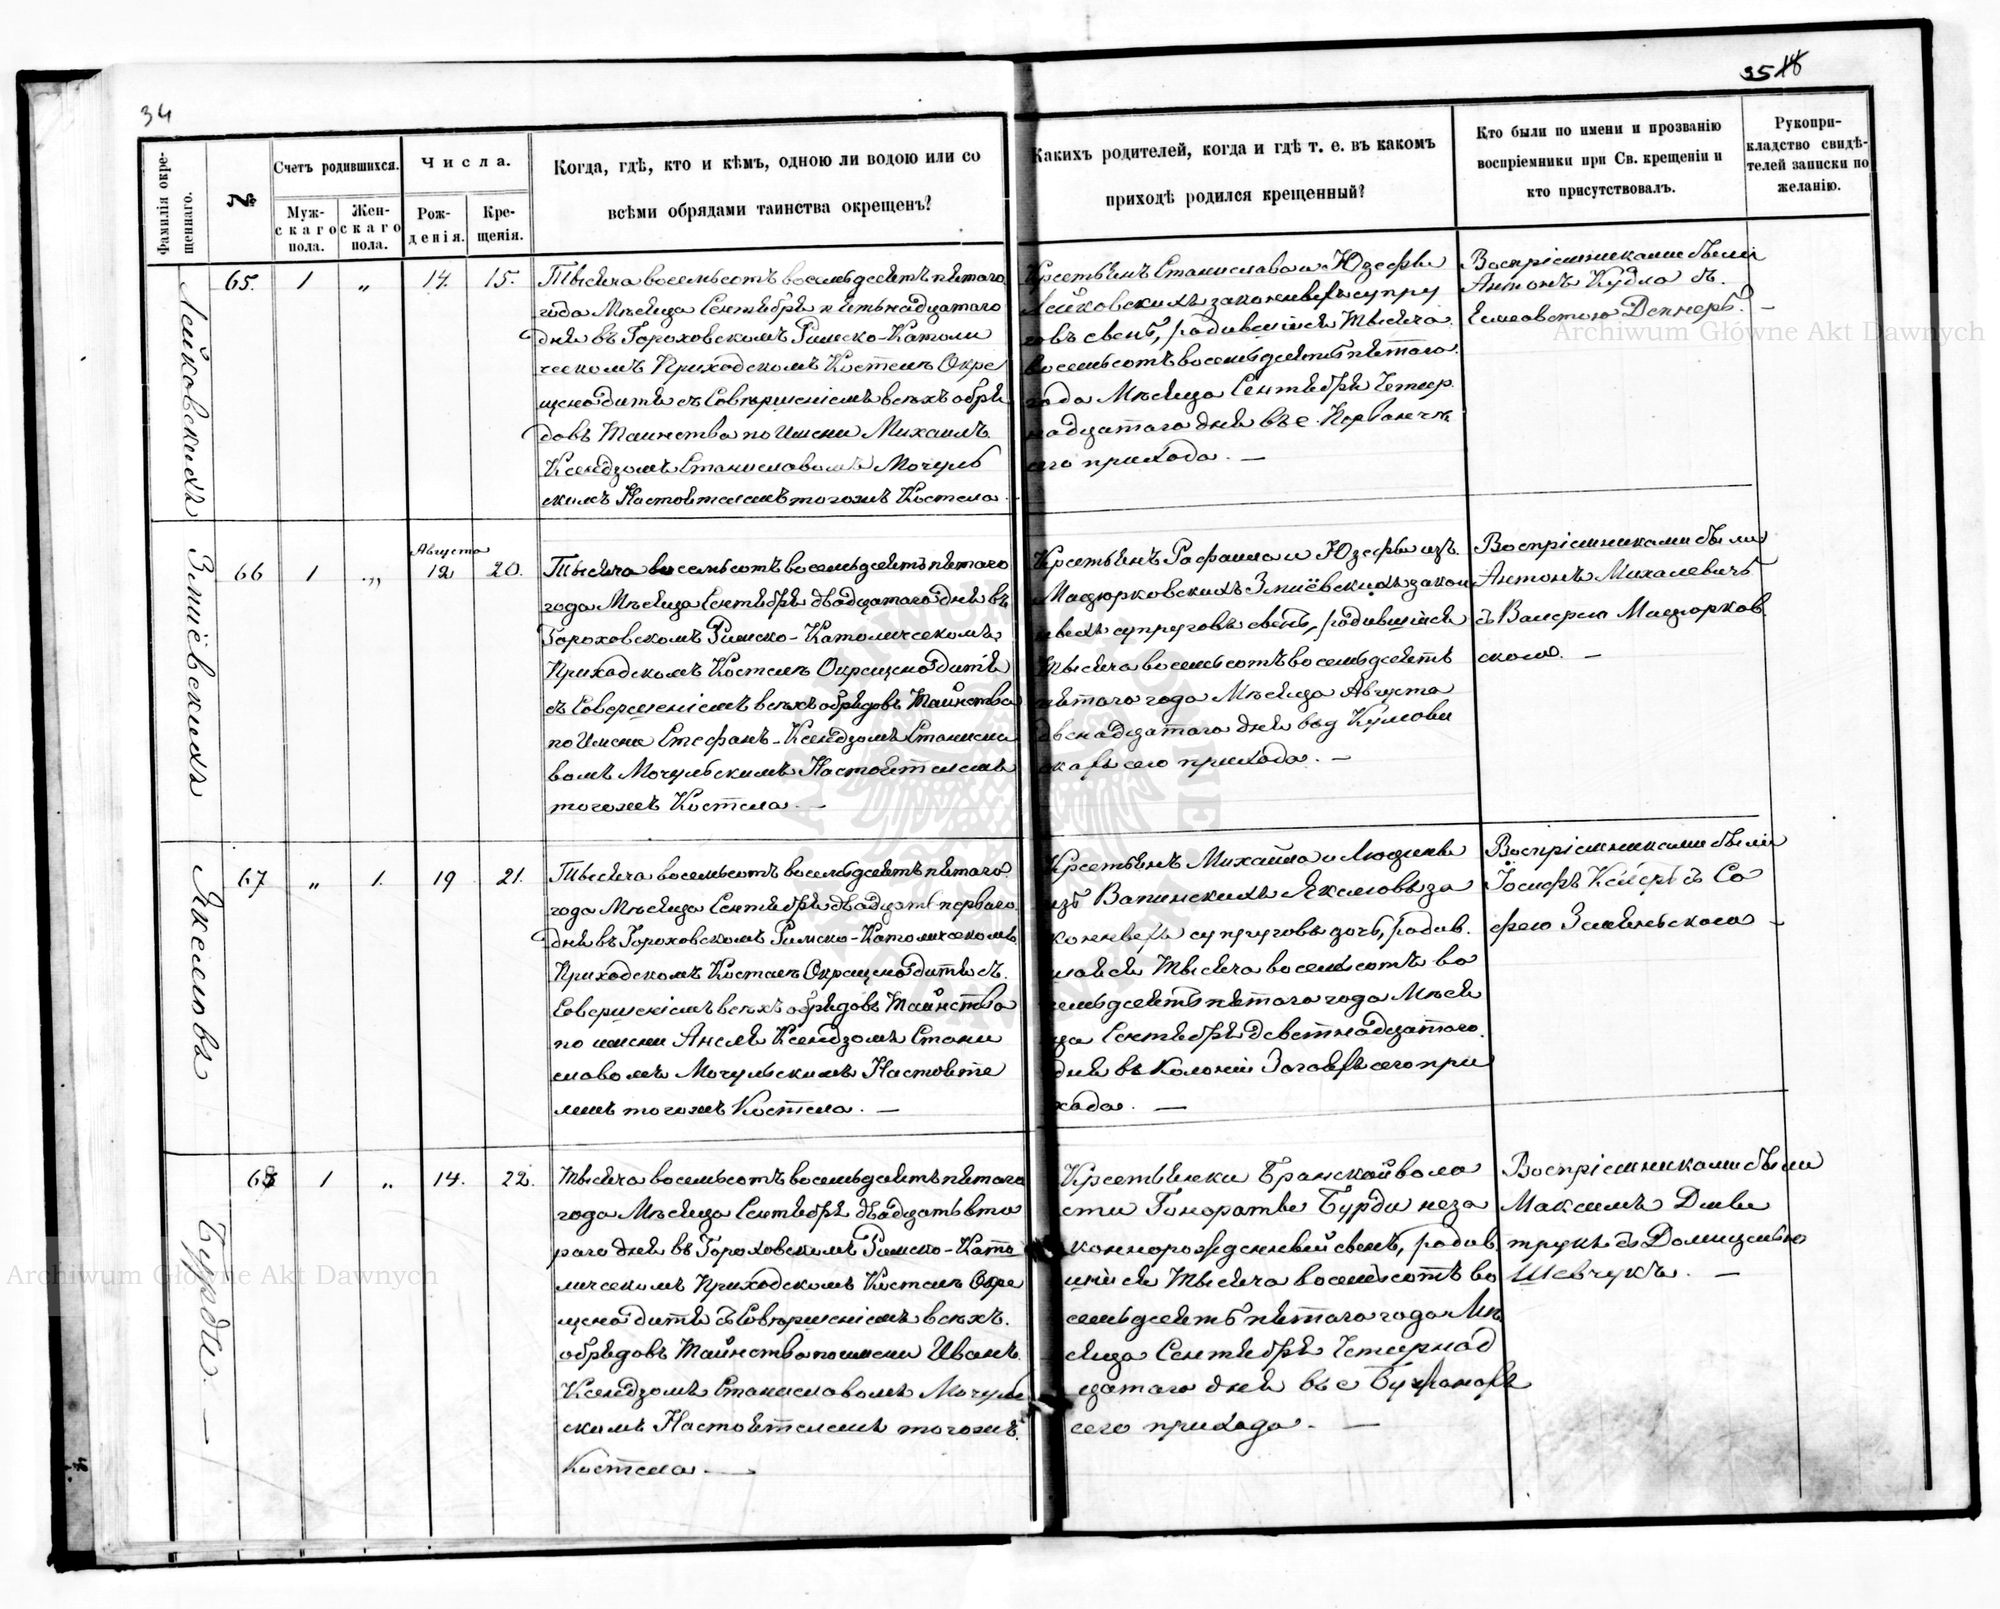 34
35 18
Фамилія окре-
щеннаго.
№
Счетъ родившихся.
Муж-
скаго
пола.
Жен-
скаго
пола.
Числа.
Рож-
денія.
Кре-
щенія.
Когда, гдѣ, кто и кѣмъ, одною ли водою или со
всѣми обрядами таинства окрещенъ?
Какихъ родителей, когда и гдѣ т. е. въ какомъ
приходѣ родился крещенный?
Кто были по имени и прозванію
воспріемники при Св. крещеніи и
кто присутствовалъ.
Рукопри-
кладство свидѣ-
телей записки по
желанію.
Лейковскихъ
65. 1 „ 14. 15.
Тысяча восемьсотъ восемьдесятъ пятаго
года Мѣсяца Сентября пятьнадцатаго
дня въ Гороховскомъ Римско-Католи
ческомъ Приходскомъ Костелѣ Окре
щено дитя съ Совершеніемъ всѣхъ обря
довъ Таинства по Имени Михаилъ
Ксендзомъ Станиславомъ Мочуль
скимъ Настоятелемъ тогожъ Костела.
Крестьянъ Станислава и Юзефы
Лейковскихъ законныхъ супру
говъ сынъ, родившійся Тысяча
восемьсотъ восемьдесятъ пятаго
года Мѣсяца Сентября Четыр
надцатаго дня въ с.
сего прихода. —
Воспріемниками были
Антонъ Кудла съ
Елисаветою Депнеръ. —
Змиёвскихъ
66 1 „ Августа 12 20.
Тысяча восемьсотъ восемьдесятъ пятаго
года Мѣсяца Сентября двадцатаго дня въ
Гороховскомъ Римско-Католическомъ
Приходскомъ Костелѣ Окрещено дитя
съ Совершеніемъ всѣхъ обрядовъ Таинства
по Имени Стефанъ-Ксендзомъ Станисла
вомъ Мочульскимъ Настоятелемъ
тогожъ Костела. —
Крестьянъ Рафаила и Юзефы изъ
Мацюрковскихъ Змиёвскихъ закон
ныхъ супруговъ сынъ, родившійся
Тысяча восемьсотъ восемьдесятъ
пятаго года Мѣсяца Августа
двѣнадцатаго дня въ д
сего прихода. —
Воспріемниками были
Антонъ Михалевичъ
съ Валерею Мацюрков
скою. —
Якелювъ
67 „ 1. 19 21.
Тысяча восемьсотъ восемьдесятъ пятаго
года Мѣсяца Сентября двадцать перваго
дня въ Гороховскомъ Римско-Католическомъ
Приходскомъ Костелѣ Окрещено дитя съ
Совершеніемъ всѣхъ обрядовъ Таинства
по имени Анеля Ксендзомъ Стани
славомъ Мочульскимъ Настояте
лемъ тогожъ Костела. —
Крестьянъ Михаила и Людвики
изъ Вапинскихъ Якелювъ за
конныхъ супруговъ дочь, родив
шаяся Тысяча восемьсотъ во
семьдесятъ пятаго года Мѣся
ца Сентября девятнадцатаго
дня въ Колоніи сего при
хода. —
Воспріемниками были
Іосифъ съ Со
фею —
Бурды. —
68 1 „ 14. 22.
Тысяча восемьсотъ восемьдесятъ пятаго
года Мѣсяца Сентября двадцать вто
раго дня въ Гороховскомъ Римско-Като
лическомъ Приходскомъ Костелѣ Окре
щено дитя съ Совершеніемъ всѣхъ
обрядовъ Таинства по имени Иванъ
Ксендзомъ Станиславомъ Мочуль
скимъ Настоятелемъ тогожъ
Костела. —
Крестьянки Бранской воло
сти Гоноратты Бурды неза
коннорожденный сынъ, родив
шійся Тысяча восемьсотъ во
семьдесятъ пятаго года Мѣ
сяца Сентября Четырнад
цатаго дня въ с
сего прихода. —
Воспріемниками были
Максимъ Дми
трукъ съ Домицелью
Шевчукъ. —
Archiwum Główne Akt Dawnych
Archiwum Główne Akt Dawnych